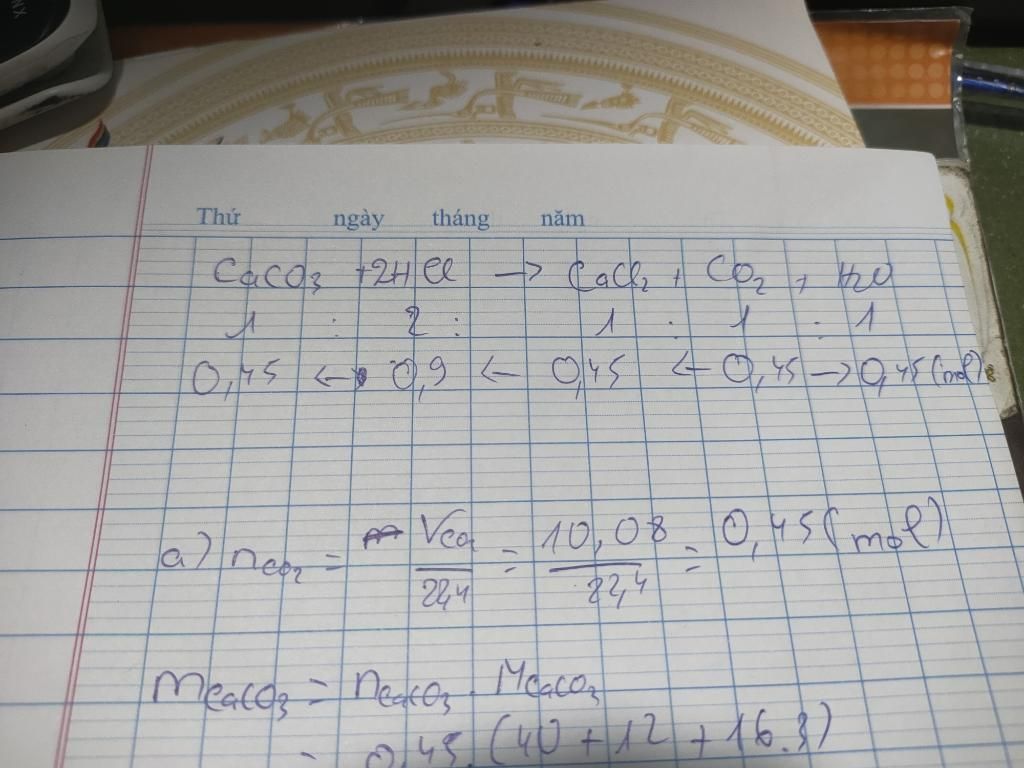 Thứ ngày tháng năm
CaCO₃ + 2HCl → CaCl₂ + CO₂ + H₂O
1 : 2 : 1 . 1 . 1
0,45 ← 0,9 ← 0,45 ← 0,45 → 0,45 (mol)
a) nCO₂ = VCO₂/22,4 = 10,08/22,4 = 0,45 (mol)
mCaCO₃ = nCaCO₃ . MCaCO₃
= 0,45. (40 + 12 + 16.3)